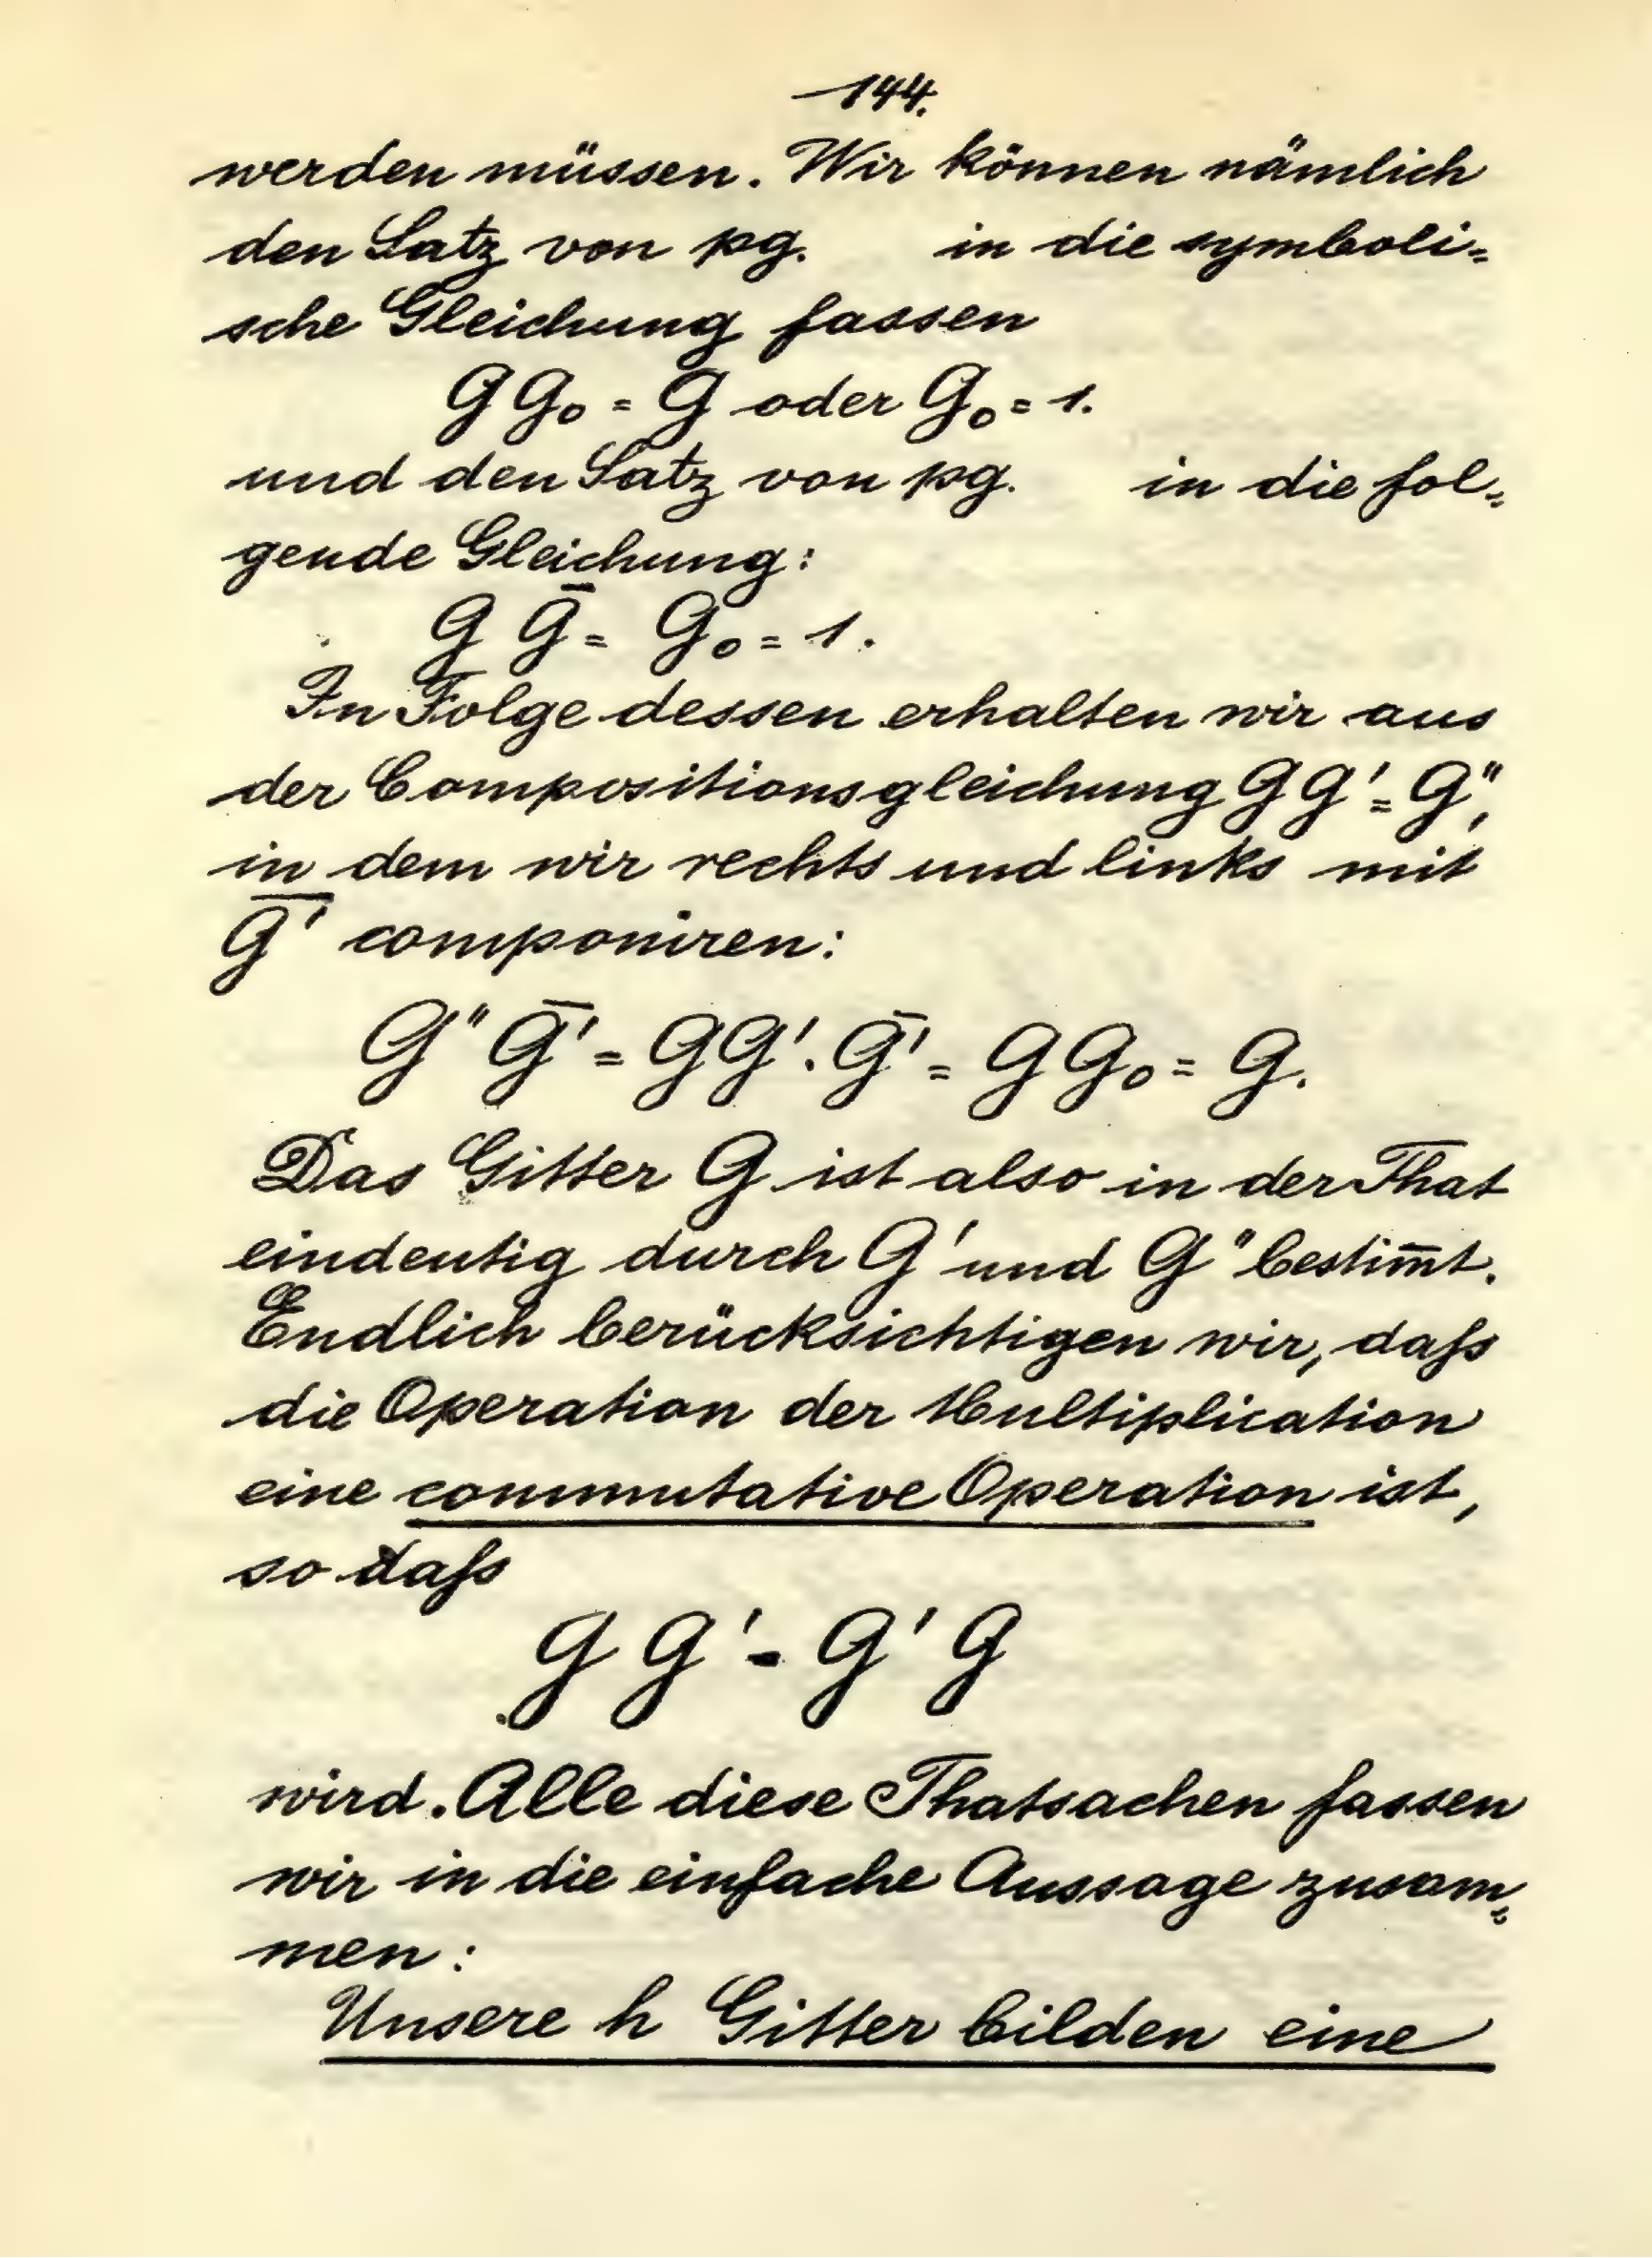 144.
werden müssen. Wir können nämlich
den Satz von pg. in die symboli=
sche Gleichung fassen
G G₀ = G oder G₀ = 1.
und den Satz von pg. in die fol=
gende Gleichung:
G Ḡ = G₀ = 1.
In Folge dessen erhalten wir aus
der Compositionsgleichung G G' = G'',
in dem wir rechts und links mit
Ḡ' componiren:
G'' Ḡ' = G G' . Ḡ' = G G₀ = G.
Das Gitter G ist also in der That
eindeutig durch G' und G'' bestim̅t.
Endlich berücksichtigen wir, daſs
die Operation der Multiplication
eine commutative Operation ist,
so daſs
G G' = G' G
wird. Alle diese Thatsachen fassen
wir in die einfache Aussage zusam=
men:
Unsere h Gitter bilden eine